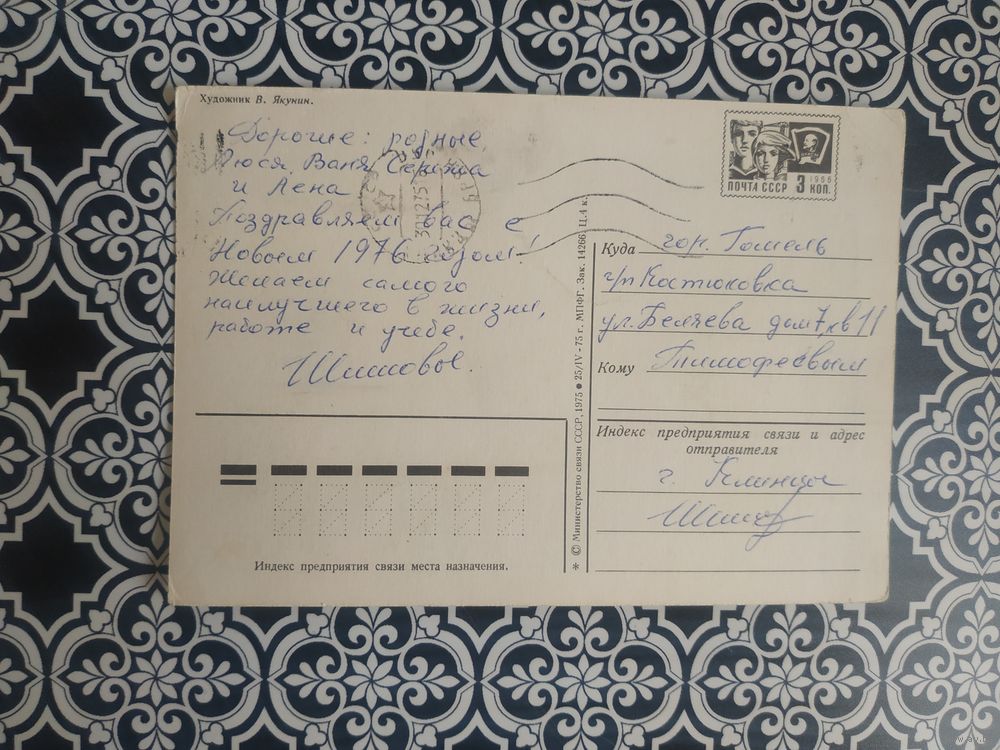 Художник В. Якунин.
Дорогие: родные,
Люся, Ваня, Сережа
и Лена
Поздравляем вас с
Новым 1976 годом!
Желаем самого
наилучшего в жизни,
работе и учебе.
Шишовы.
Индекс предприятия связи места назначения.
* © Министерство связи СССР, 1975 ● 25/IV-75 г. МПФГ. Зак. 14266. Ц. 4 к.
1966
ПОЧТА СССР 3 КОП.
Куда гор. Гомель
г/п Костюковка
ул. Беляева дом 7, кв 11
Кому Тимофеевым
Индекс предприятия связи и адрес
отправителя
г. Клинцы